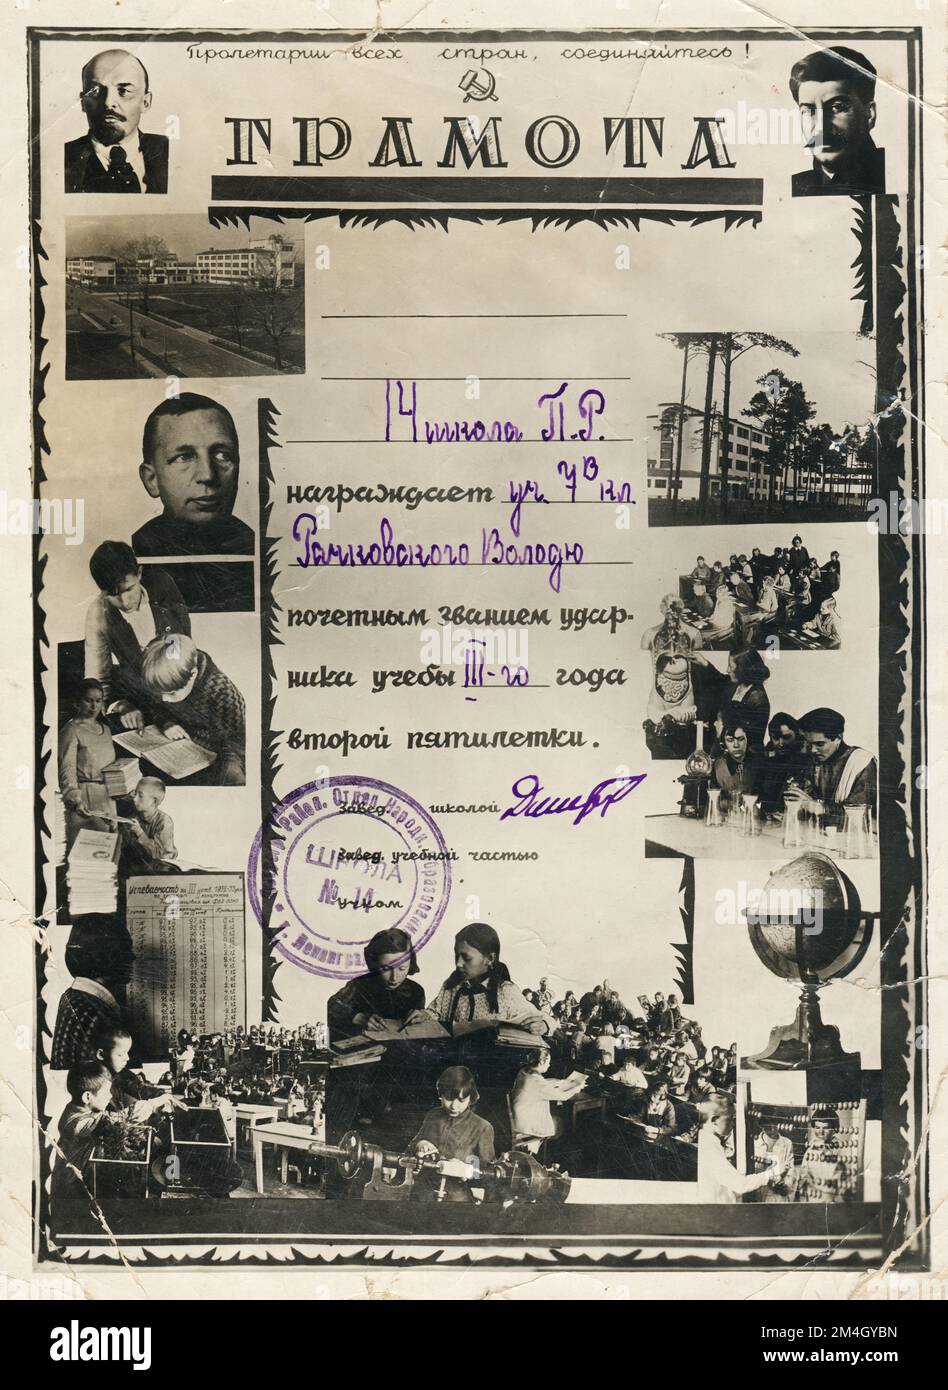 Пролетарии всех стран, соединяйтесь!
ГРАМОТА
14 школа П.Р.
награждает уч. 7в кл.
Рачковского Володю
почетным званием удар-
ника учебы III-го года
второй пятилетки.
Завед. школой
Завед. учебной частью
учком
Район. Отдел Народн. Образования
г. Ленинград
ШКОЛА
№ 14
Успеваемость за III четв. 1932-33
alamy
Image ID: 2M4GYBN
www.alamy.com